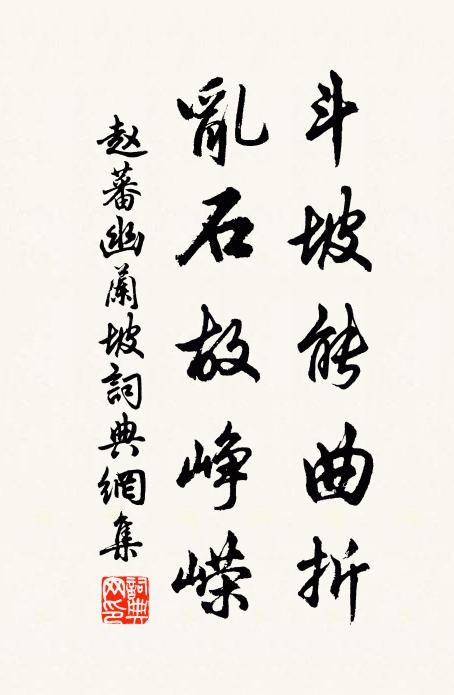 斗坡能曲折
亂石故峥嶸
赵蕃幽蘭坡詞典網集
詞典
网印